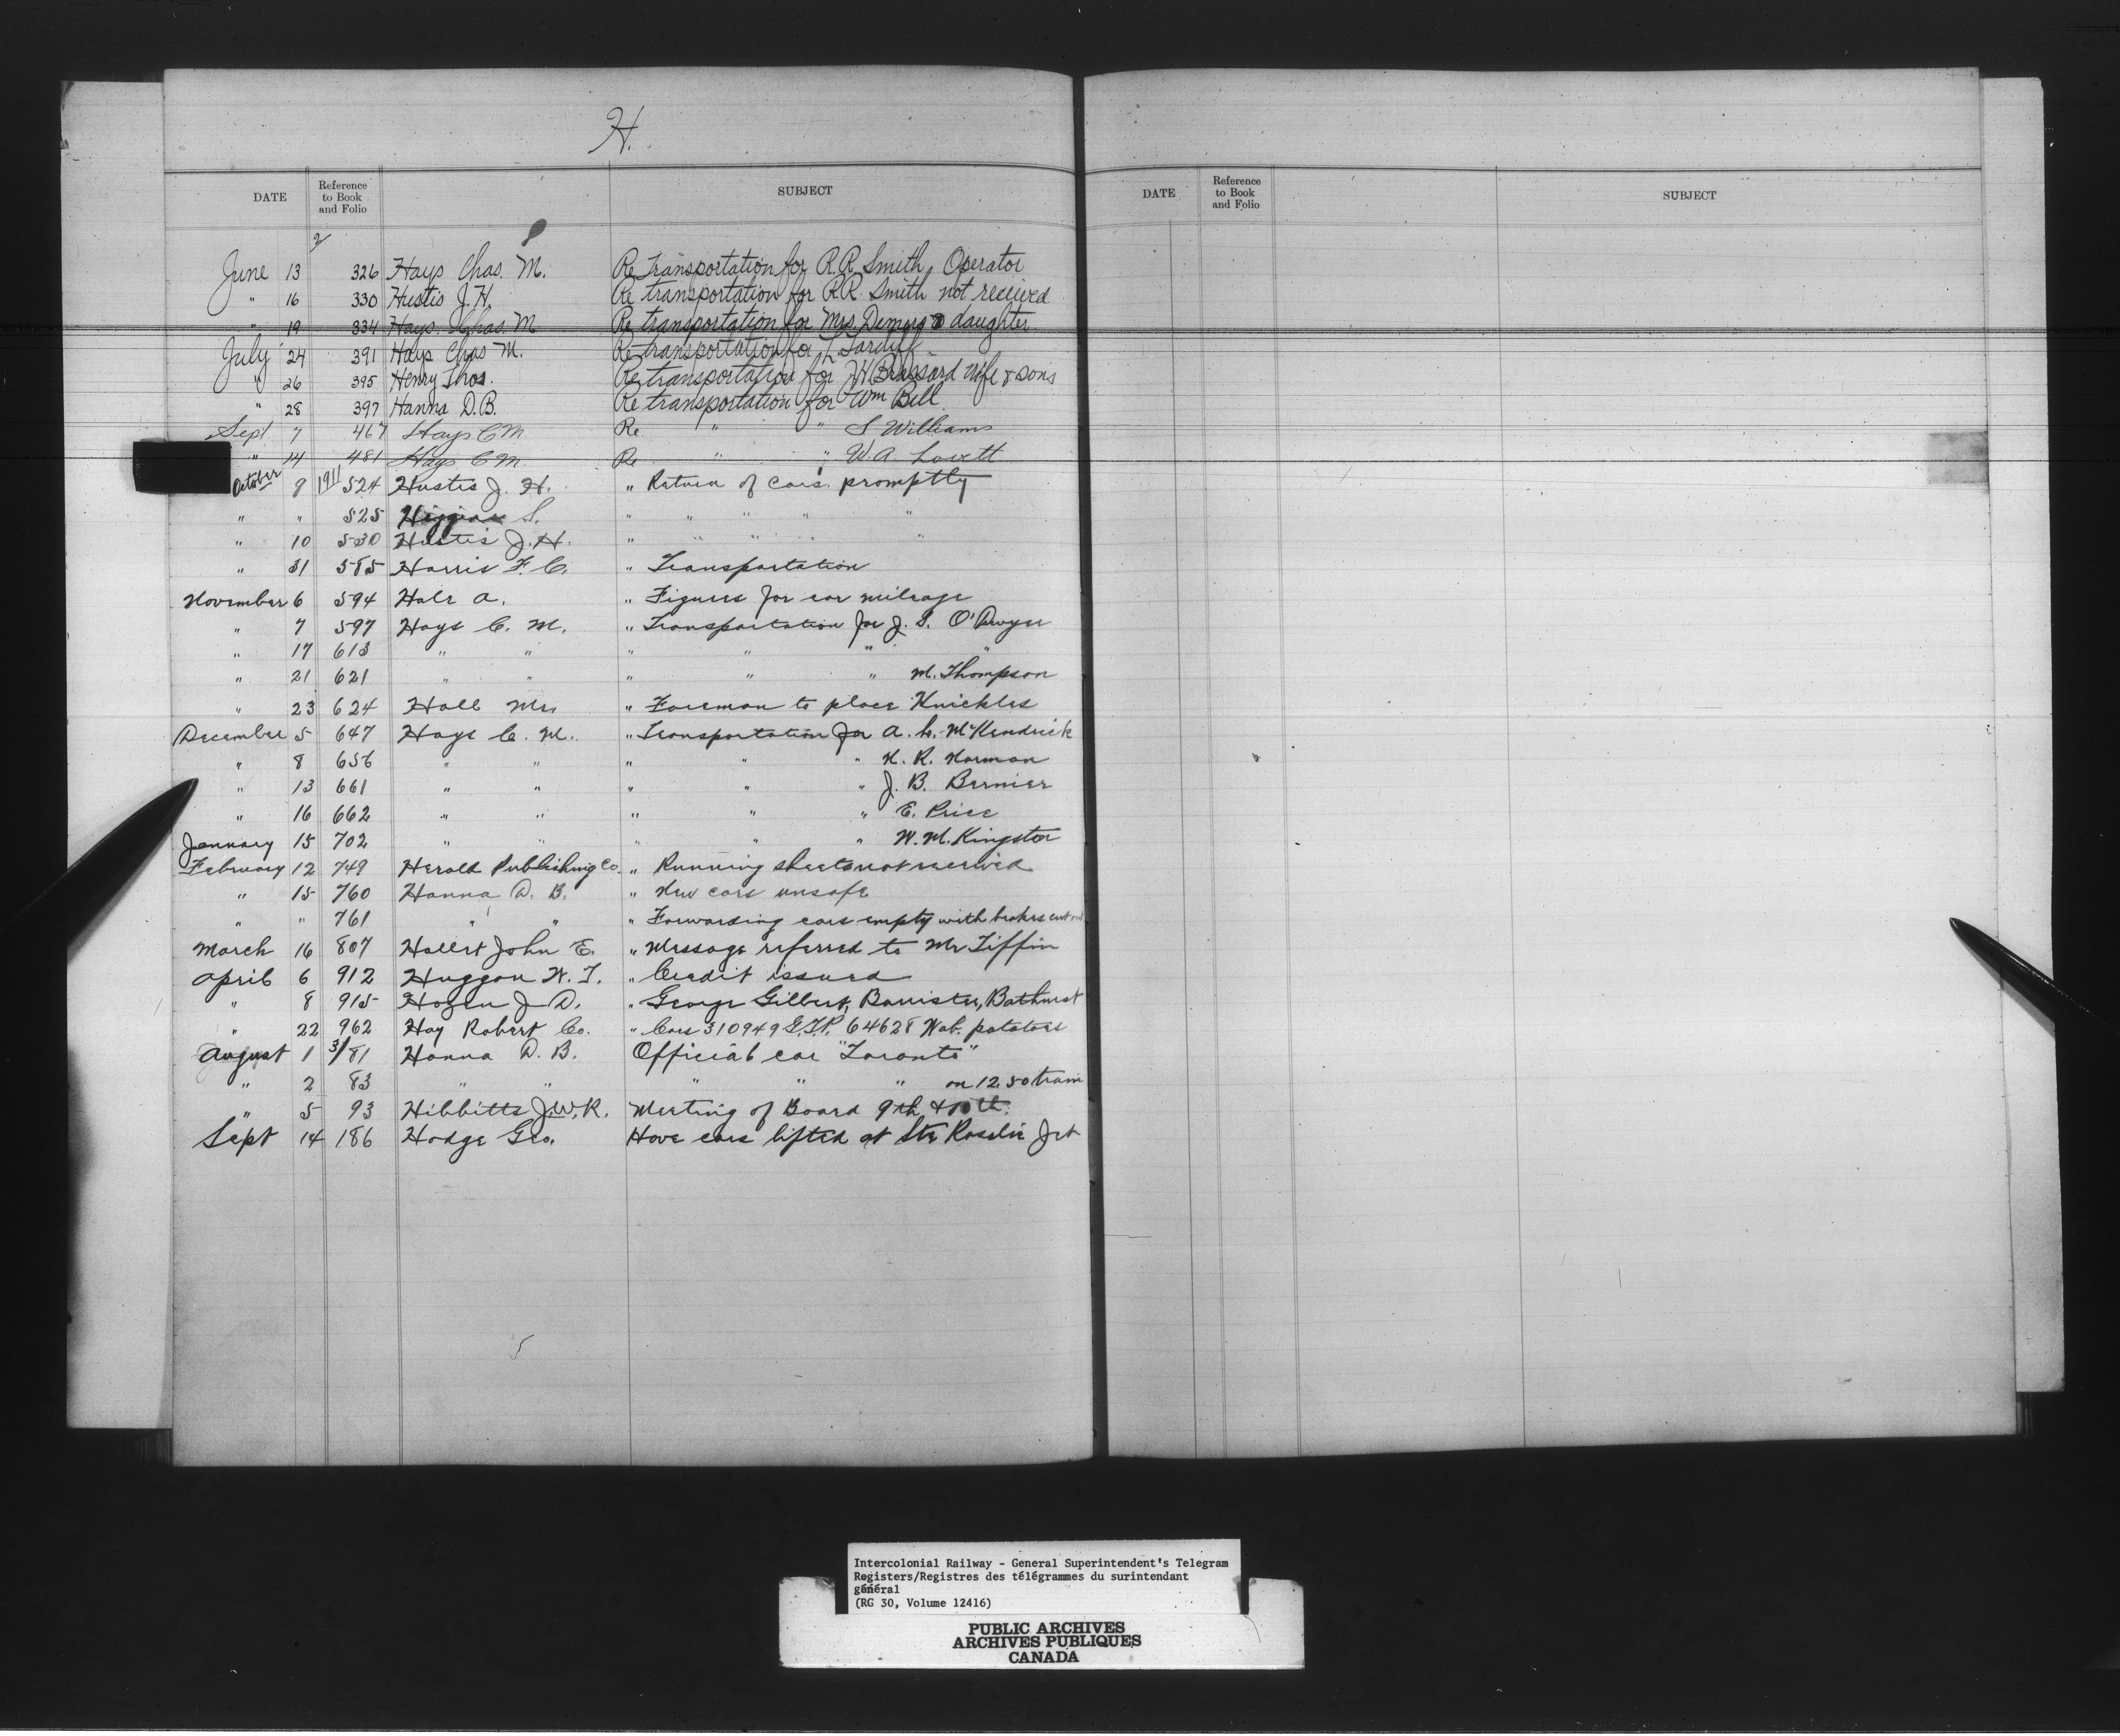 H.
DATE Reference to Book and Folio SUBJECT
2
June 13 326 Hays Chas. M. Re Transportation for R.R. Smith, Operator
" 16 330 Hustis J.H. Re transportation for R.R. Smith not received
" 19 334 Hays Chas. M Re transportation for Mrs Demers & daughter
July 24 391 Hays Chas M. Re transportation for L Tardiff
" 26 395 Henry Thos. Re transportation for Brassard Wife & sons
" 28 397 Hanna D.B. Re transportation for Wm Bell
Sept 7 467 Hays C M Re " " S Williams
" 14 481 Hays C M. Re " " W.A. Lovett
October 9 1911 524 Hustis J. H. " Return of cars promptly
" " 525 S. " " " " "
" 10 530 Hustis J. H. " " " " "
" 31 585 Harris F. C. " Transportation
November 6 594 Hale A. " Figures for car mileage
" 7 597 Hays C. M. " Transportation for J. S. O'Dwyer
" 17 613 " " " " " "
" 21 621 " " " " " M. Thompson
" 23 624 Hall Mrs " Foreman to place Knickles
December 5 647 Hays C. M. " Transportation for A. L. McKendrick
" 8 656 " " " " " H. R. Norman
" 13 661 " " " " " J. B. Bernier
" 16 662 " " " " " E. Price
January 15 702 " " " " " W. M. Kingston
February 12 749 Herald Publishing Co. " Running sheets not received
" 15 760 Hanna D. B. " New cars unsafe
" " 761 " " " Forwarding cars empty with brakes cut out
March 16 807 John E. " Message referred to Mr Tiffin
April 6 912 Huggan W. T. " Credit issued
" 8 915 Hazen J. D. " George Gilbert, Barrister, Bathurst
" 22 962 Hay Robert Co. " Cars 310949 G.T.R. 64628 Wab. potatoes
August 1 3/81 Hanna D. B. Official car "Toronto"
" 2 83 " " " " " on 12.50 train
" 5 93 Hibbitts J.W.R. Meeting of Board 9th & 10th.
Sept 14 186 Hodge Geo. Have cars lifted at Ste Rosalie Jct
DATE Reference to Book and Folio SUBJECT
Intercolonial Railway - General Superintendent's Telegram
Registers/Registres des télégrammes du surintendant
général
(RG 30, Volume 12416)
PUBLIC ARCHIVES
ARCHIVES PUBLIQUES
CANADA